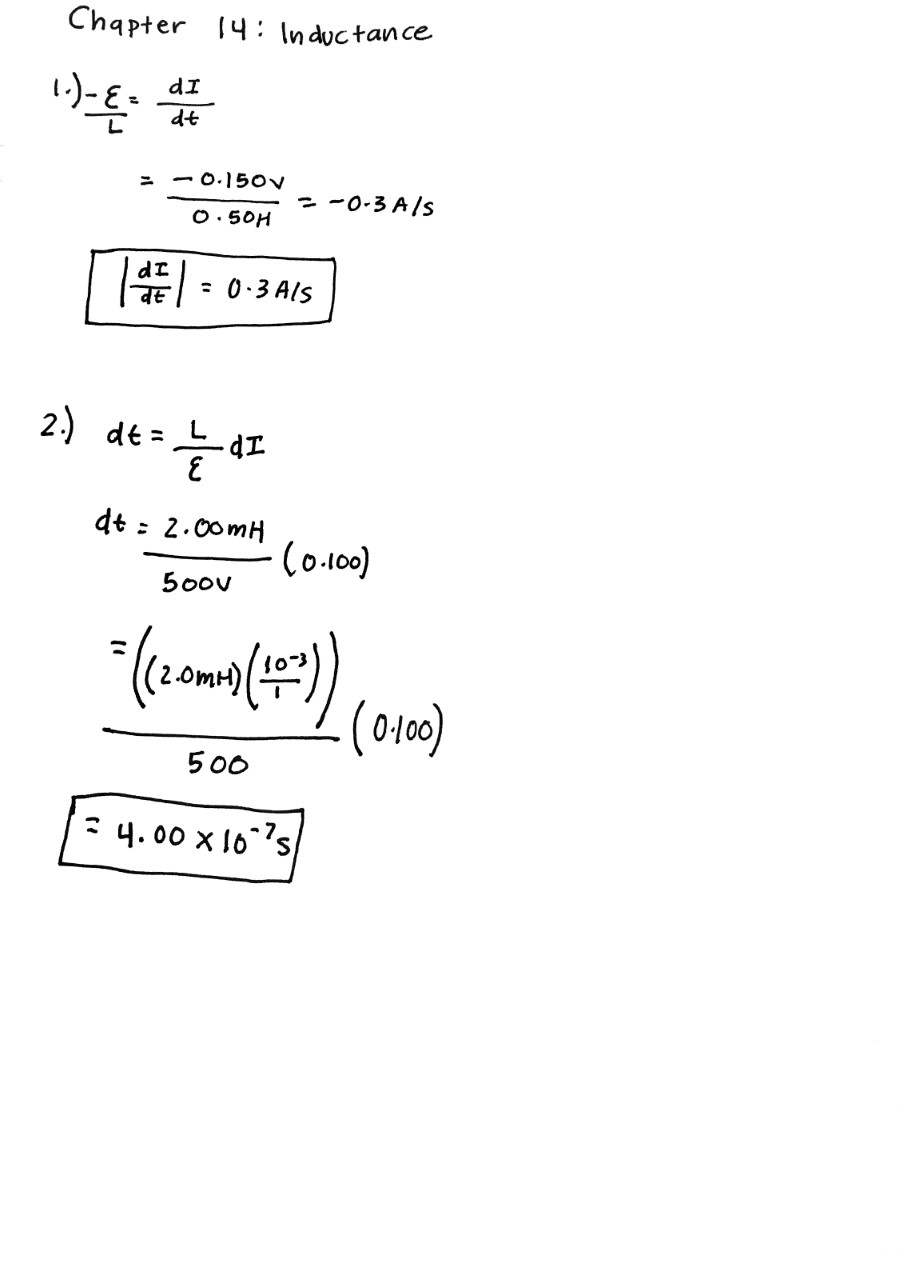 Chapter 14: Inductance
1.) -ℰ/L = dI/dt
= -0.150V/0.50H = -0.3 A/s
|dI/dt| = 0.3 A/s
2.) dt = L/ℰ dI
dt = 2.00mH/500V (0.100)
= ((2.0mH)(10⁻³/1))/500 (0.100)
= 4.00 x 10⁻⁷s